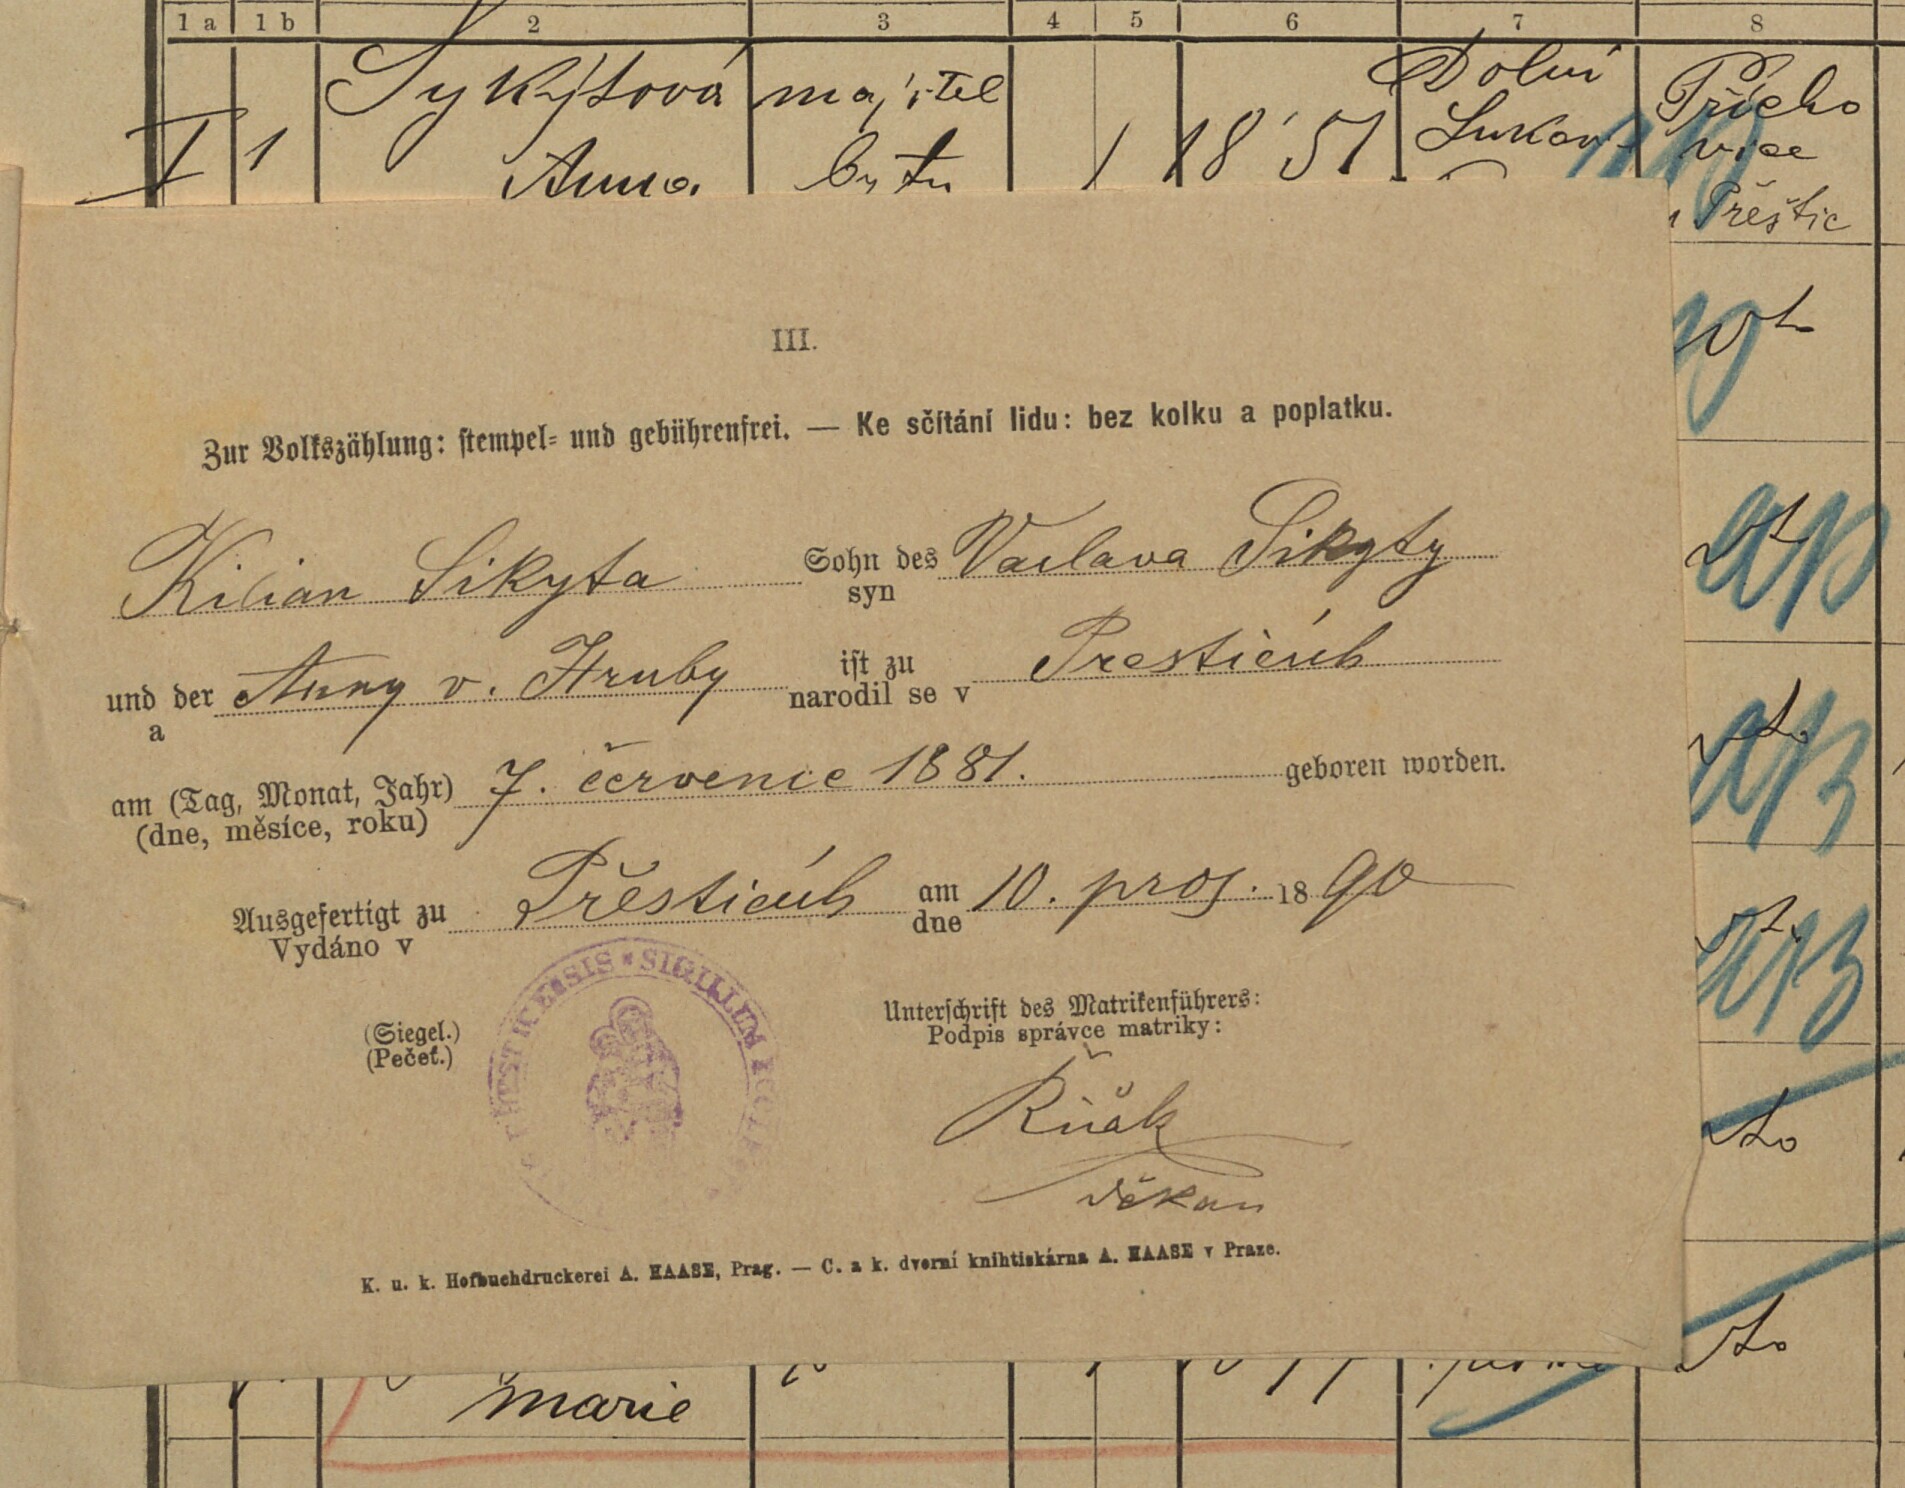 1 a 1 b 2 3 4 5 6 7 8
Sykýtová majitel Dolní Přícho
I 1 Anna bytu 1 18 51 Lukav vice
Přeštic
III.
Zur Volkszählung: stempel- und gebührenfrei. — Ke sčítání lidu: bez kolku a poplatku.
Kilian Sikyta Sohn des Vaclava Sikyty
syn
und der Anny v. Hruby ist zu Presticích
a narodil se v
am (Tag, Monat, Jahr) 7. červenic 1881. geboren worden.
(dne, měsíce, roku)
Ausgefertigt zu Přesticích am 10. pros. 1890
Vydáno v dne
(Siegel.) Unterschrift des Matrikenführers:
(Pečeť.) Podpis správce matriky:
SIGILLUM
děkan
K. u. k. Hofbuchdruckerei A. HAASE, Prag. — C. a k. dvorní knihtiskárna A. HAASE v Praze.
marie